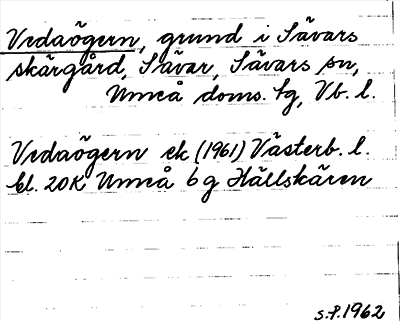 Vedaögern, grund i Sävars
skärgård, Sävar, Sävars sn,
Umeå doms. tg, Vb. l.
Vedaögern ek (1961) Västerb. l.
bl. 20K Umeå 6 g Hällskären
s.f. 1962